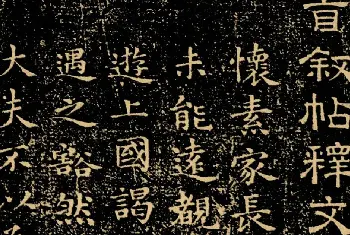 自叙帖釋文
懷素家長
未能遠覩
遊上國謁
遇之豁然
大夫不以